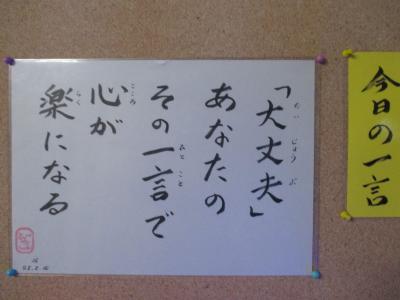 今日の一言
「大丈夫」
あなたの
その一言で
心が
楽になる